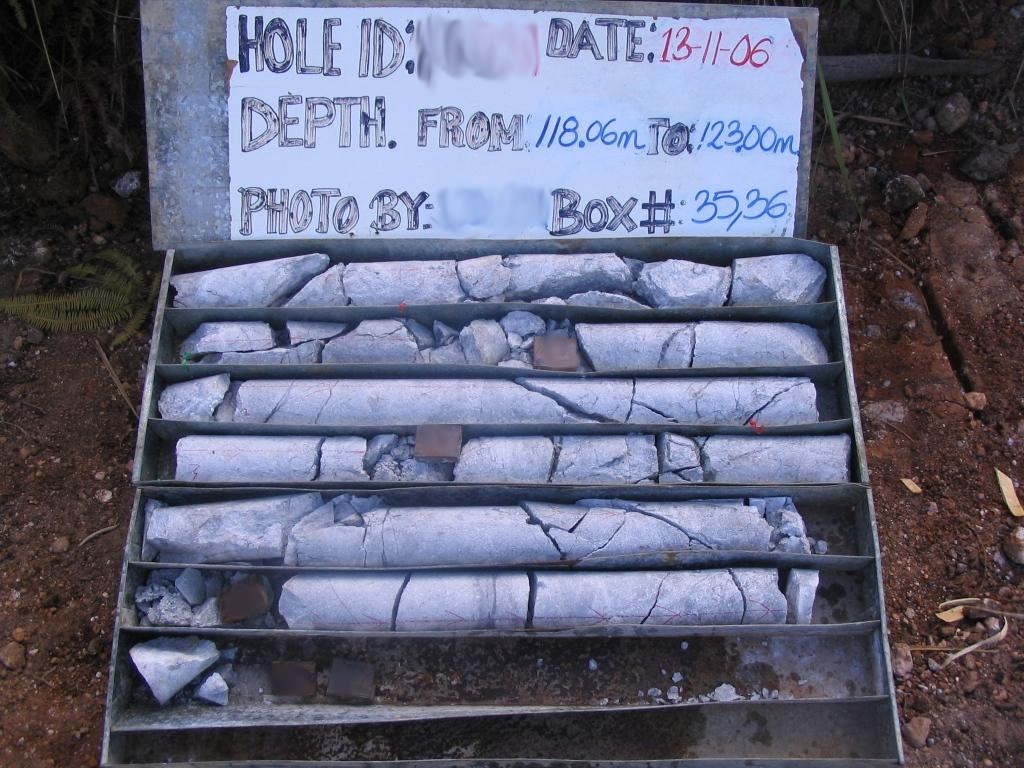 HOLE ID: DATE: 13-11-06
DEPTH. FROM 118.06m TO: 123.00m
PHOTO BY: BOX #: 35,36